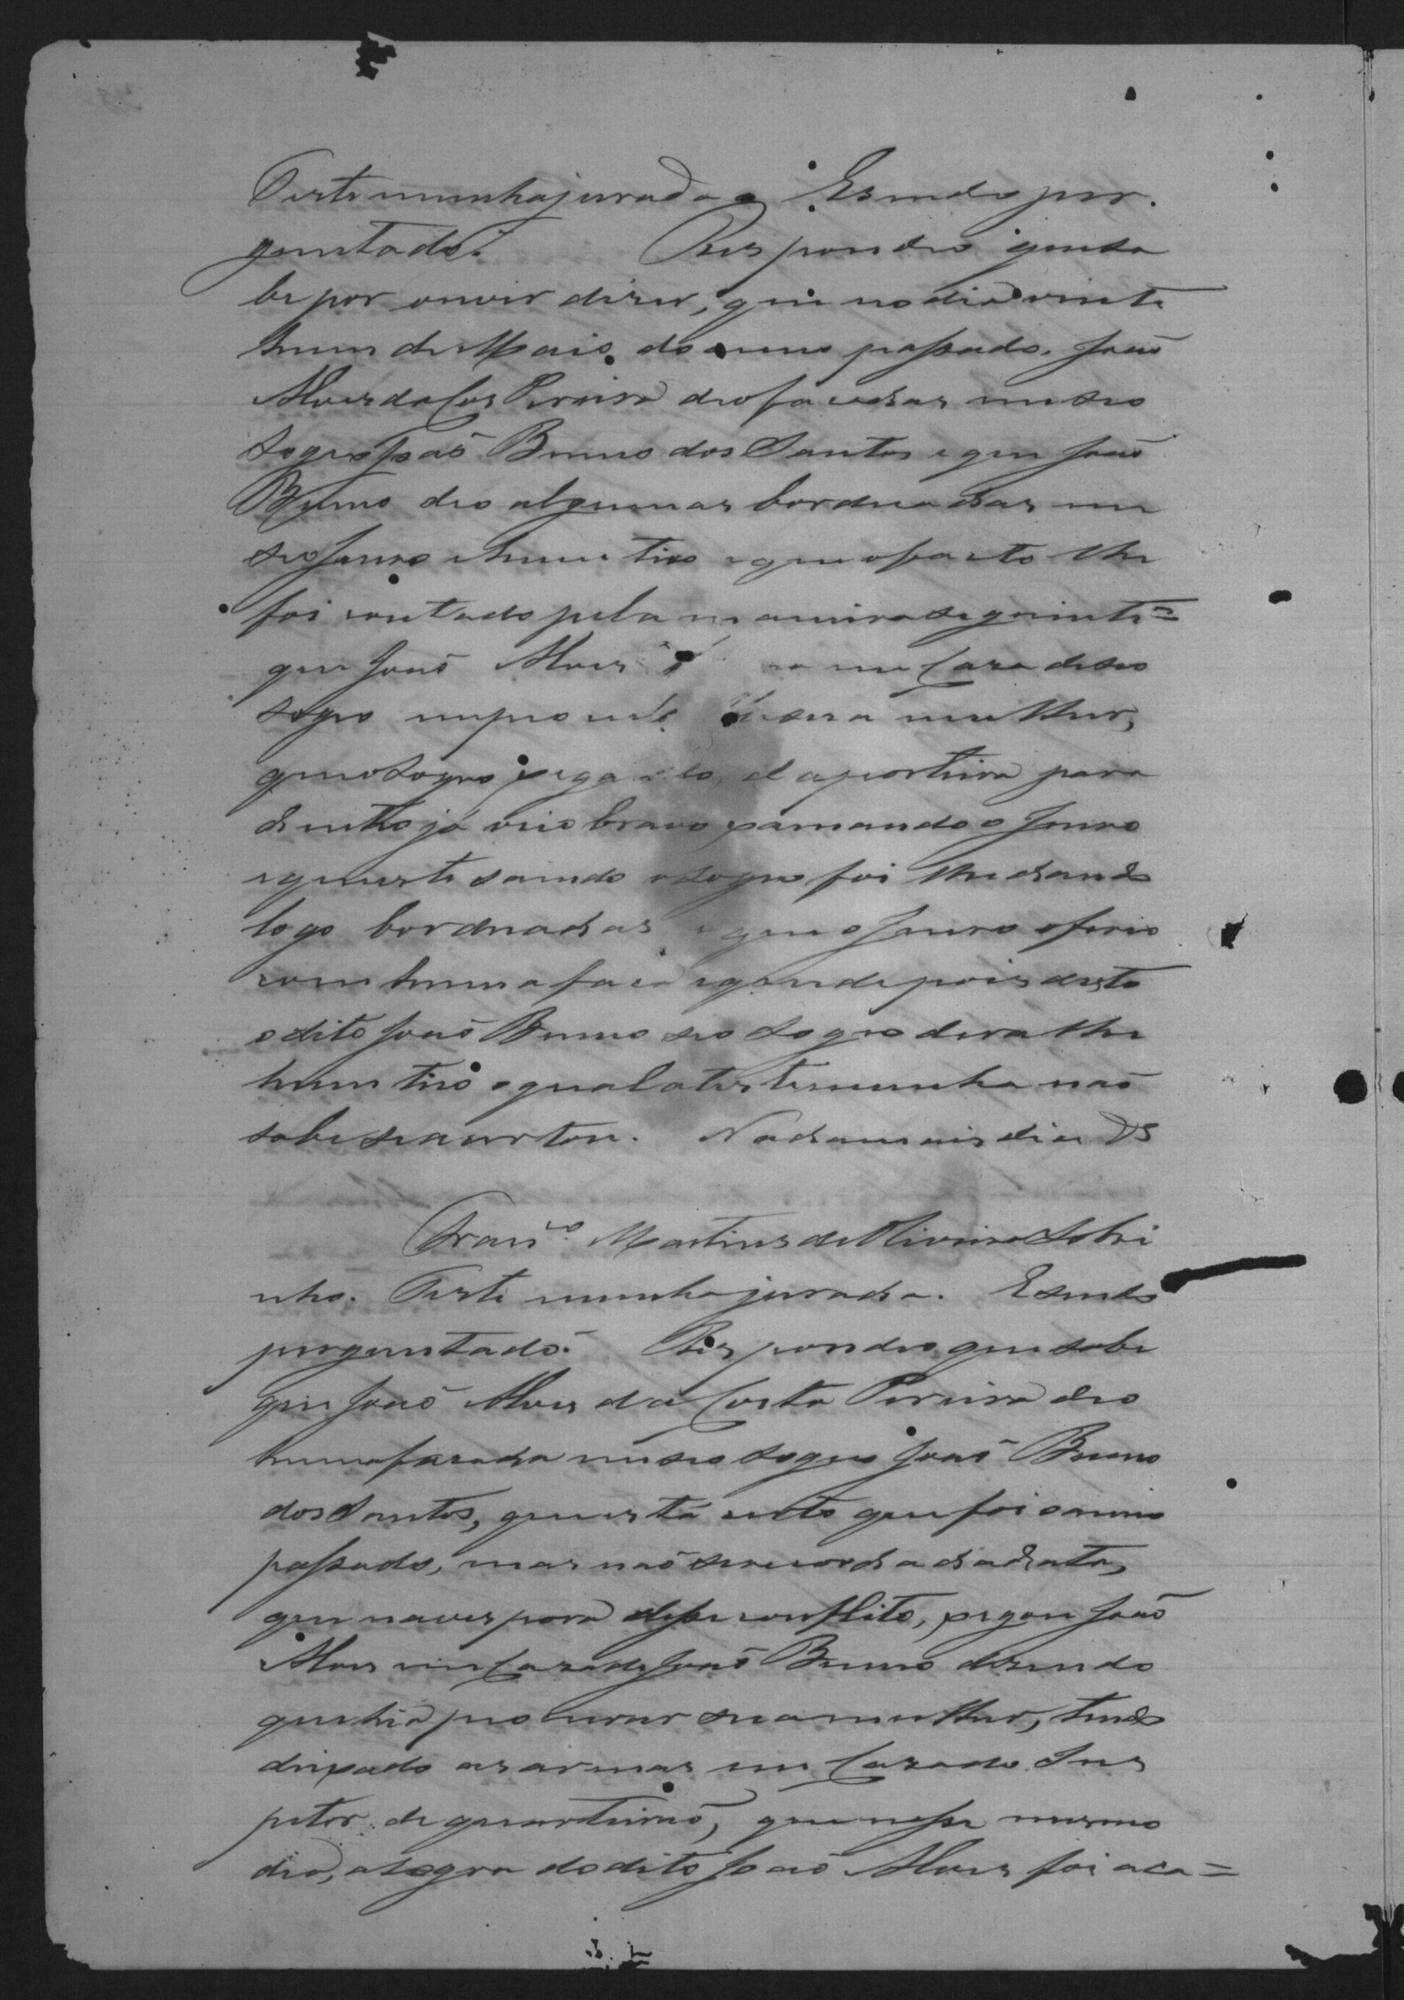 Testemunha jurada e Esendo per.
guntado. Respondeo que sa
be por ouvir dizer, que no dia vinte
hum de Maio do anno passado. João
Alves da Cos Pereira deo facadas em seo
sogro João Bruno dos Santos e que João
Bruno deo algumas borduadas em
seo genro e hum tiro e que o facto lhe
foi contado pela maneira seguinte=
que João Alves em Caza de seo
sogro a sua mulher,
que o sogro da porteira para
dentro já veio bravo o genro
e que este saindo o sogro foi lhe dando
logo borduadas e que o genro o ferio
com huma faca e que depois disto
o dito João Bruno seo sogro dera lhe
hum tiro o qual a testemunha não
sabe se acertou. Nada mais disse DS
Franco. Martins de Oliveira Sobri
nho. Testemunha jurada. Esendo
perguntado. Respondeo que sabe
que João Alves da Costa Pereira deo
huma facada em seo sogro João Bruno
dos Santos, que está certo que foi o anno
passado, mas não se recorda da data,
que na vespora desse conflito, xegou João
Alves em Caza de João Bruno dizendo
que hia procurar sua mulher, tendo
dexado as armas em Caza do Ins
petor de quarteirão, que nesse mesmo
dia, a sogra do dito João Alves foi aca=